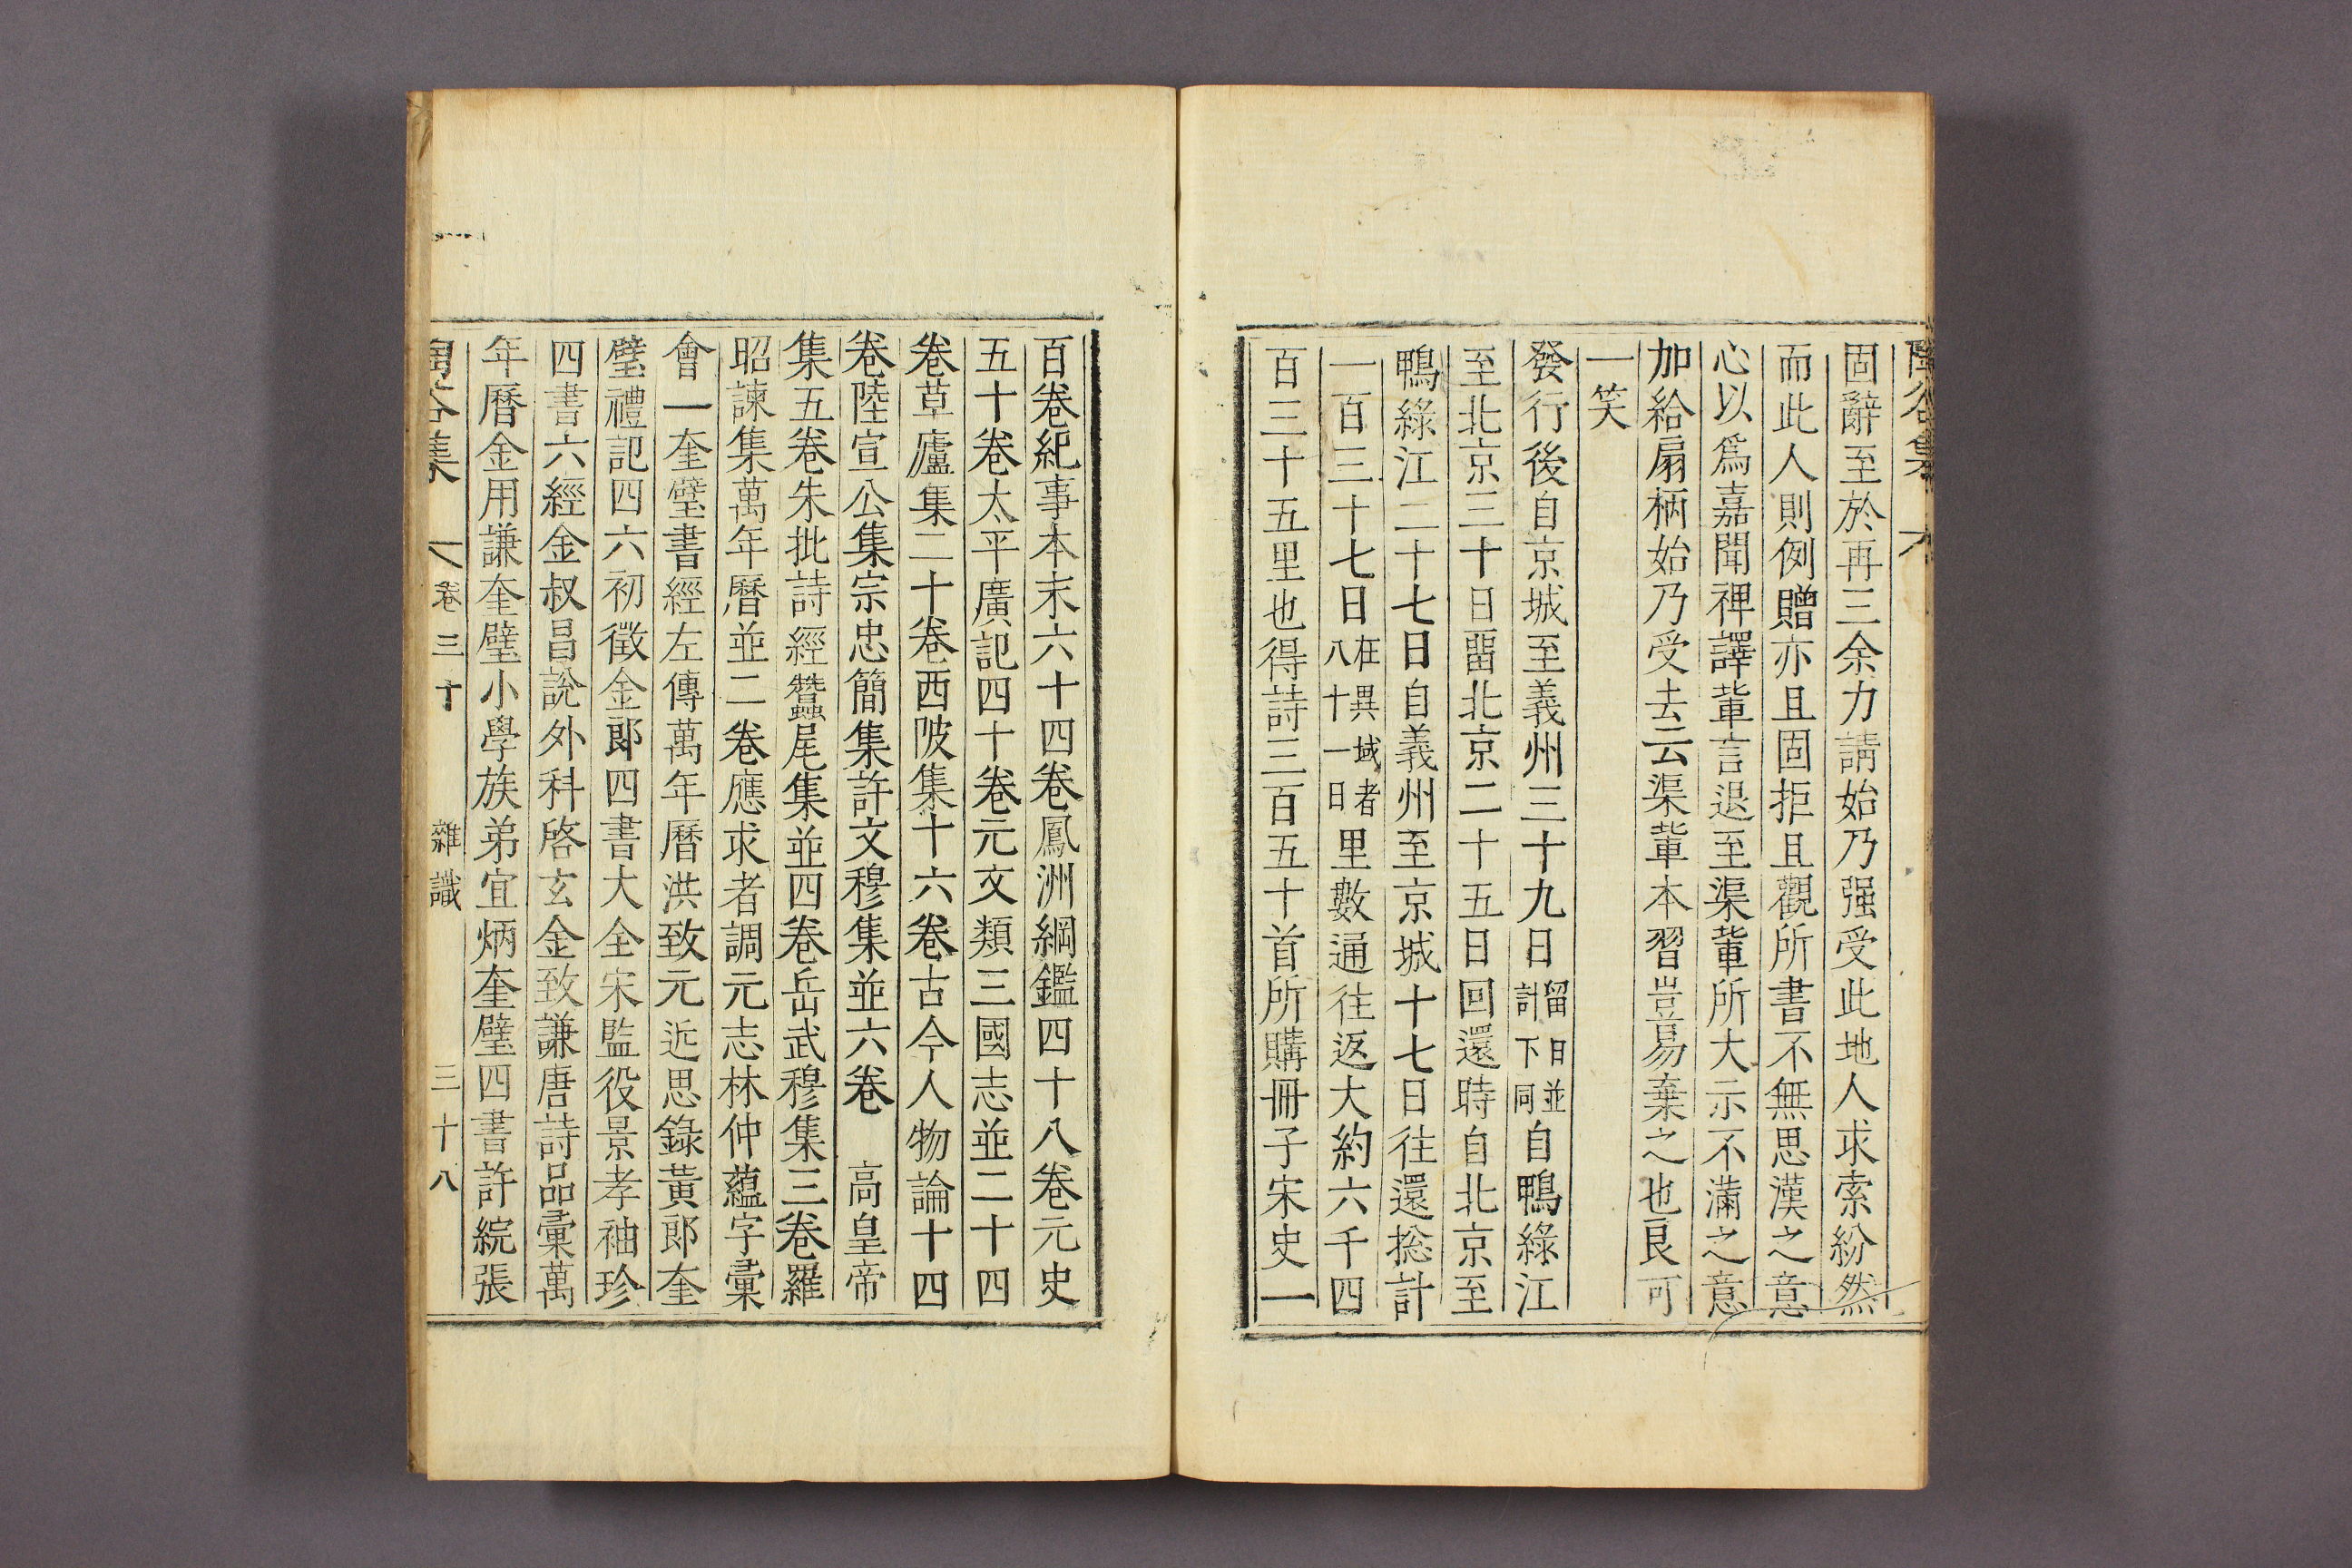 固辭至於再三余力請始乃强受此地人求索紛然
而此人則例贈亦且固拒且觀所書不無思漢之意
心以爲嘉聞裨譯軰言退至渠軰所大示不滿之意
加給扇柄始乃受去云渠軰本習豈易棄之也良可
一笑
發行後自京城至義州三十九日留日並計下同自鴨綠江
至北京三十日留北京二十五日回還時自北京至
鴨綠江二十七日自義州至京城十七日往還捴計
一百三十七日在異域者八十一日里數通往返大約六千四
百三十五里也得詩三百五十首所購冊子宋史一
百卷紀事本末六十四卷鳳洲綱鑑四十八卷元史
五十卷太平廣記四十卷元文類三國志並二十四
卷草廬集二十卷西陂集十六卷古今人物論十四
卷陸宣公集宗忠簡集許文穆集並六卷 高皇帝
集五卷朱批詩經蠶尾集並四卷岳武穆集三卷羅
昭諫集萬年曆並二卷應求者調元志林仲蘊字彙
會一奎壁書經左傳萬年曆洪致元近思錄黃郎奎
璧禮記四六初徵金郎四書大全宋監役景孝袖珍
四書六經金叔昌說外科啓玄金致謙唐詩品彙萬
年曆金用謙奎璧小學族弟宜炳奎璧四書許綄張
卷三十 雜識 三十八